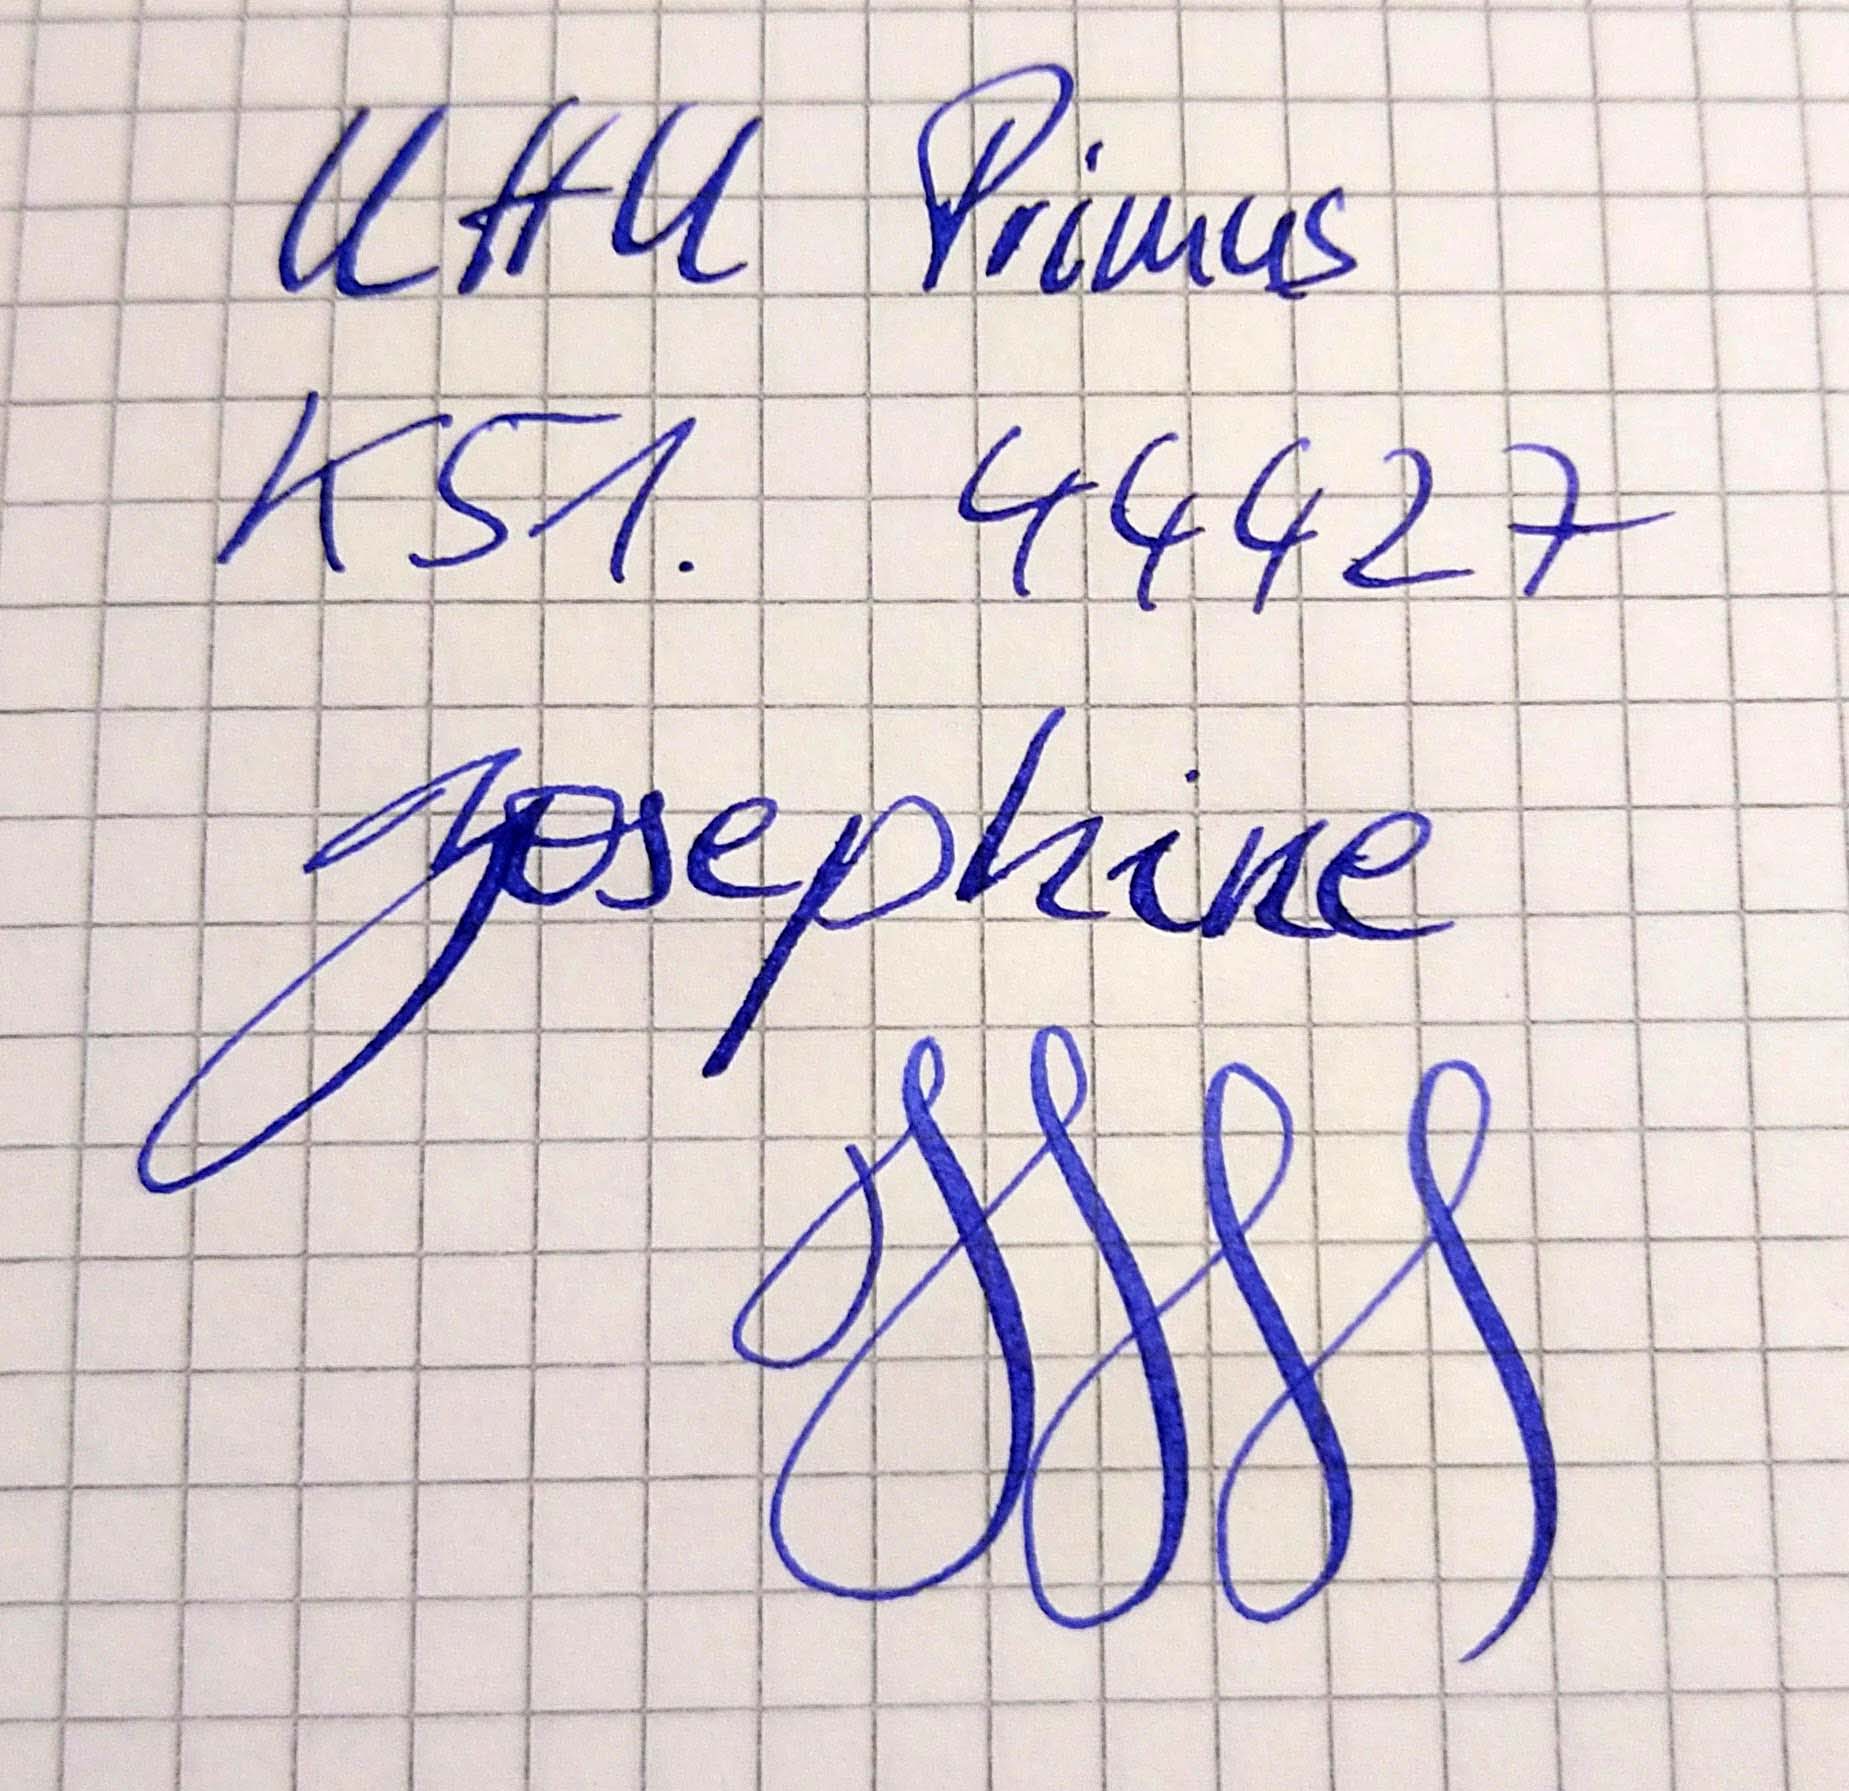 UHU Primus
K51. 44427
Josephine